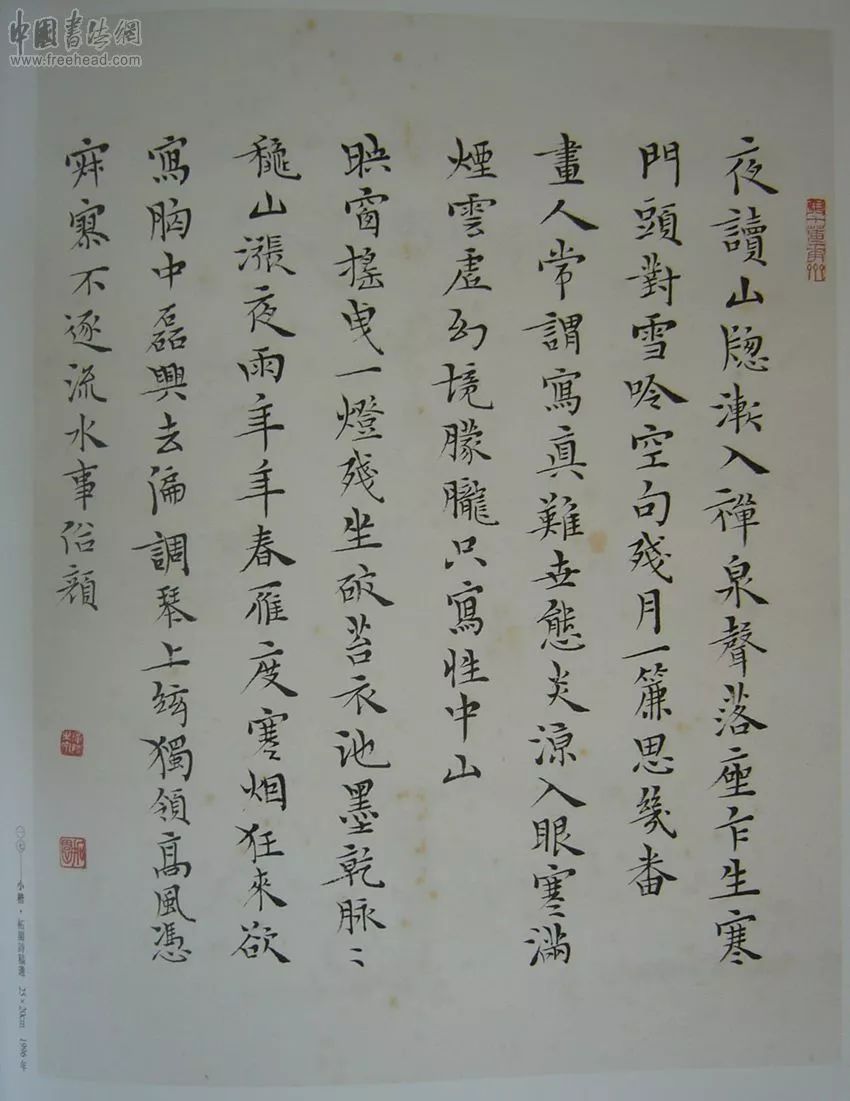 中國書法網
www.freehead.com
夜讀山牕漸入禪泉聲落座乍生寒
門頭對雪吟空句殘月一簾思幾番
畫人常謂寫真難世態炎涼入眼寒滿
煙雲虛幻境朦朧只寫性中山
映窗搖曳一燈殘坐破苔衣池墨乾脈〻
龝山漲夜雨年年春雁度寒烟狂來欲
寫胸中磊興去偏調琴上絃獨領高風憑
寂寞不逐流水事俗顏
一七 小楷·拓園詩稿選 25×20cm